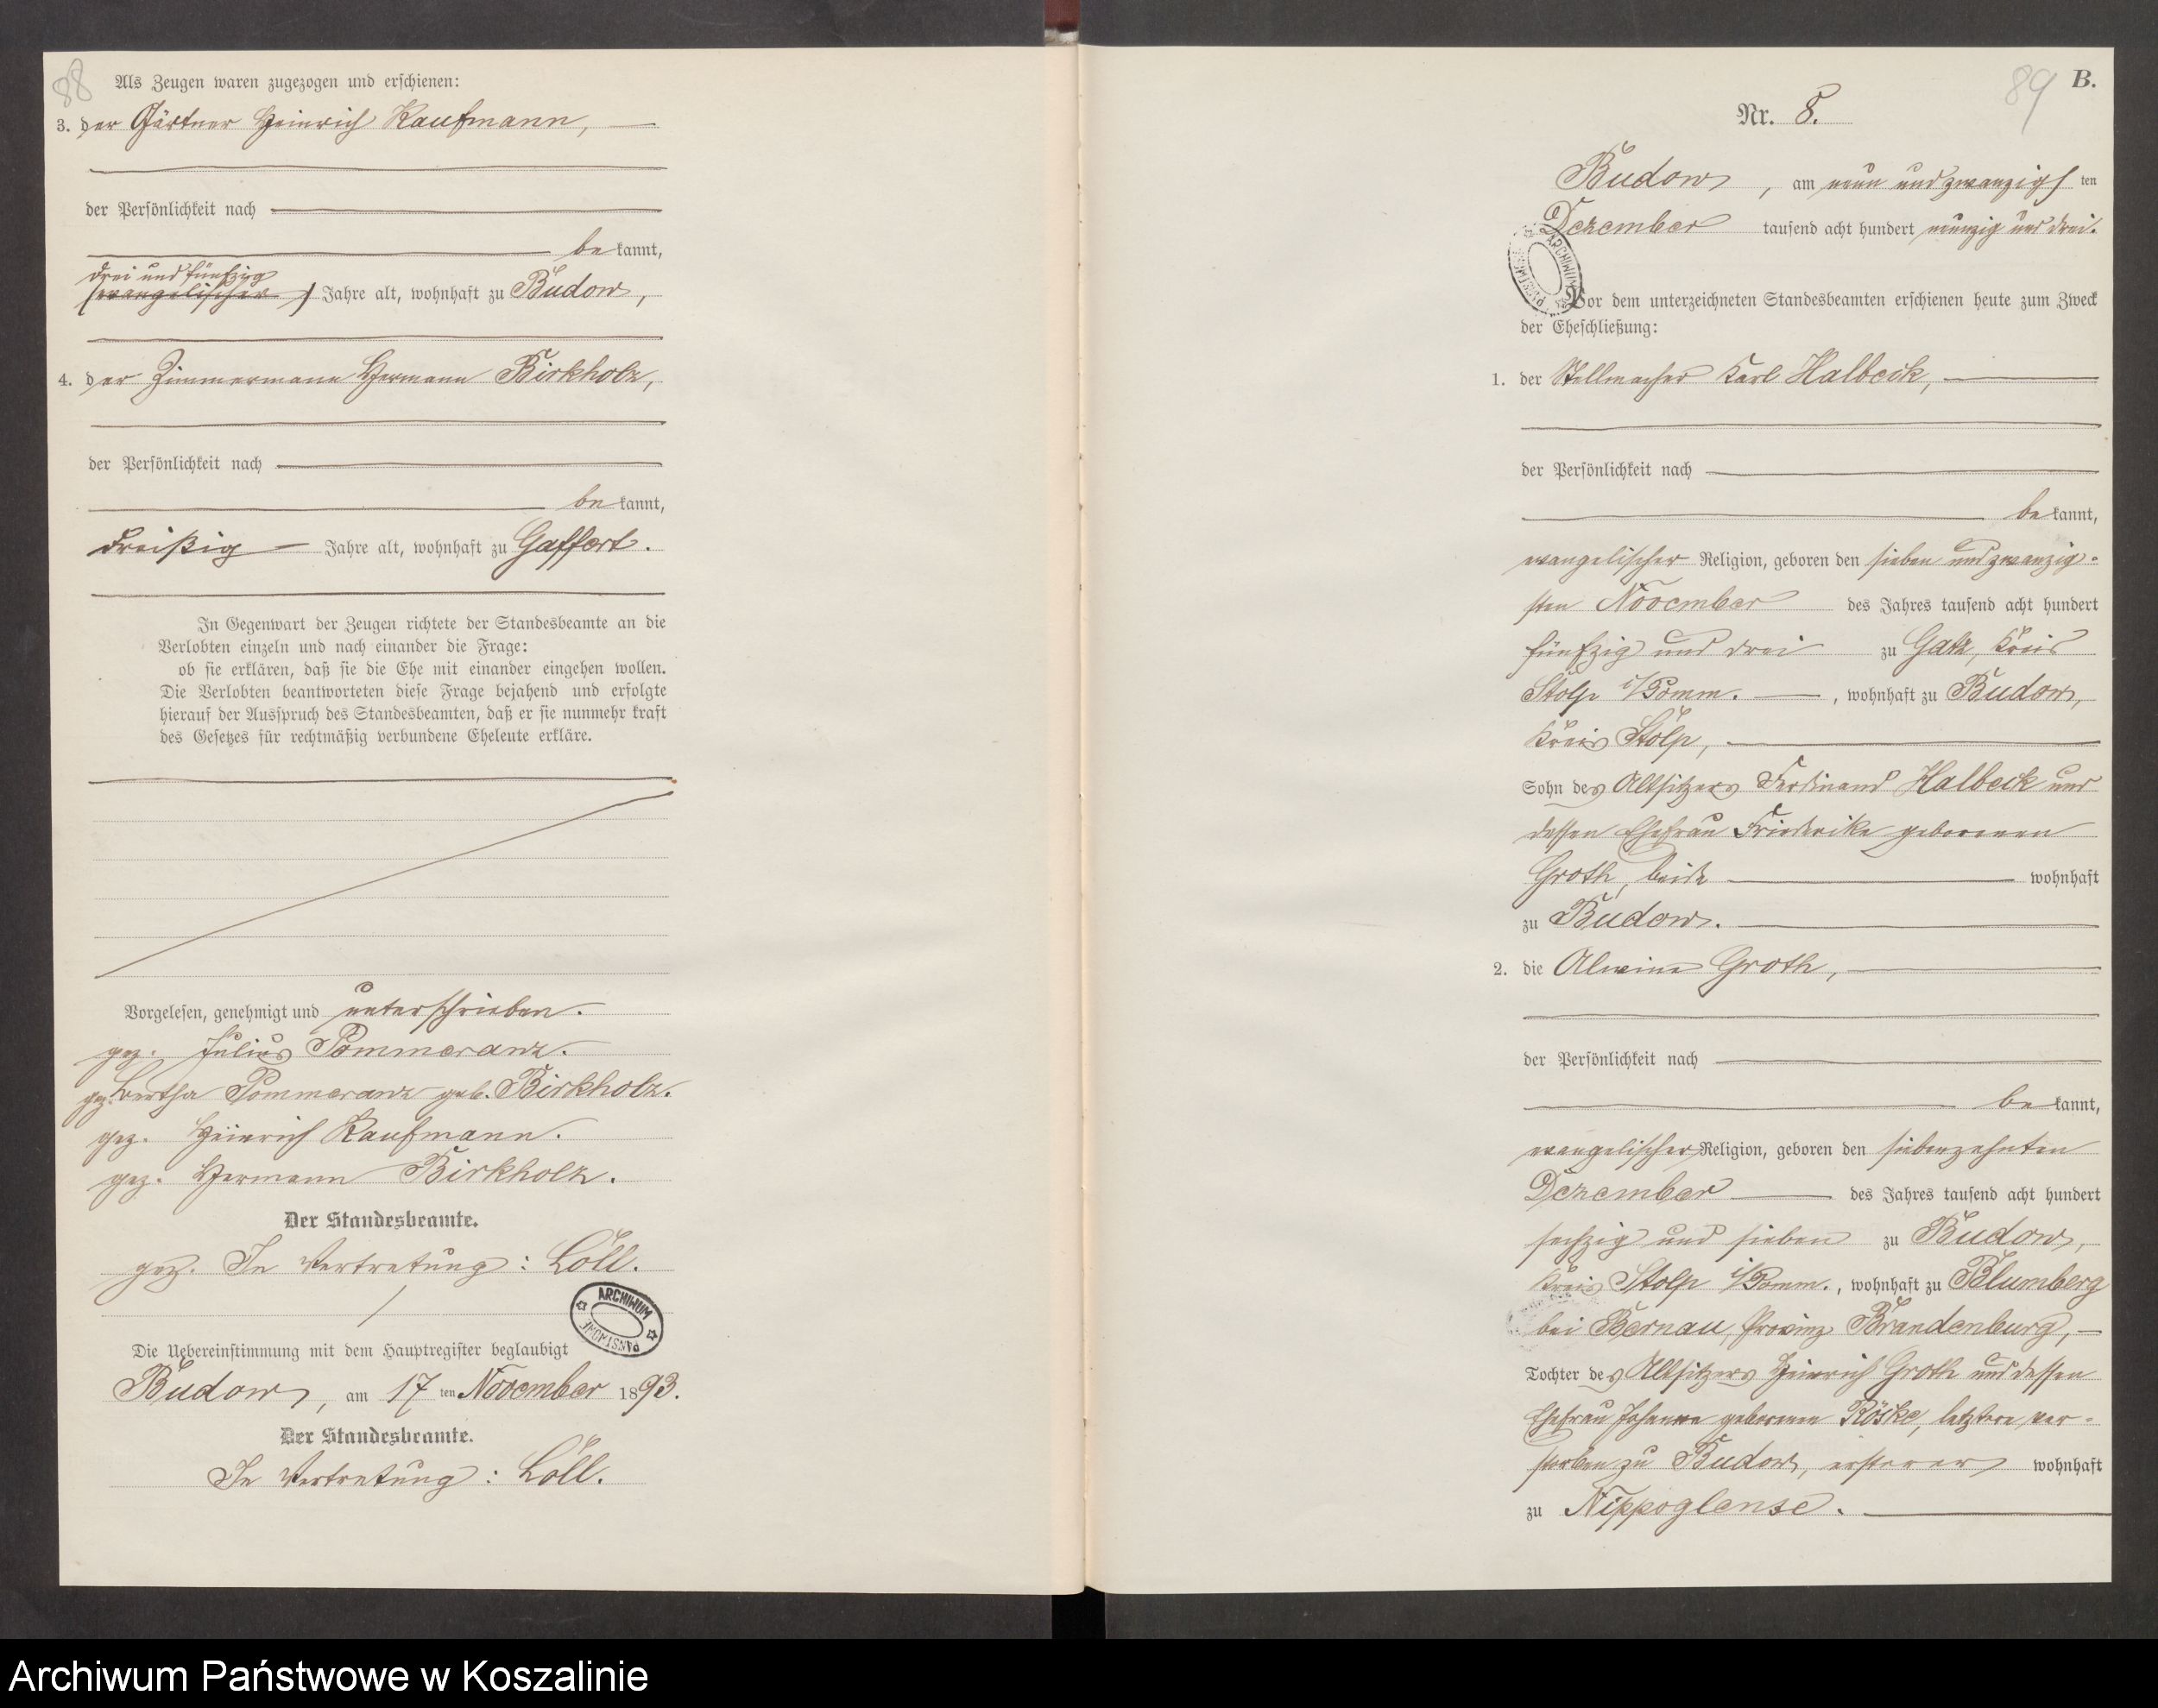 88
Als Zeugen waren zugezogen und erschienen:
3. der Gärtner Heinrich Kaufmann,
der Persönlichkeit nach
be kannt,
drei und fünfzig
(evangelischer) Jahre alt, wohnhaft zu Budow,
4. der Zimmermann Hermann Birkholz,
der Persönlichkeit nach
be kannt,
dreißig Jahre alt, wohnhaft zu Gaffert.
In Gegenwart der Zeugen richtete der Standesbeamte an die
Verlobten einzeln und nach einander die Frage:
ob sie erklären, daß sie die Ehe mit einander eingehen wollen.
Die Verlobten beantworteten diese Frage bejahend und erfolgte
hierauf der Ausspruch des Standesbeamten, daß er sie nunmehr kraft
des Gesetzes für rechtmäßig verbundene Eheleute erkläre.
Vorgelesen, genehmigt und unterschrieben.
gez. Julius Pommeranz.
gez. Bertha Pommeranz geb. Birkholz.
gez. Heinrich Kaufmann.
gez. Hermann Birkholz.
Der Standesbeamte.
gez. In Vertretung: Löll.
ARCHIWUM PAŃSTWOWE
Die Uebereinstimmung mit dem Hauptregister beglaubigt
Budow, am 17 ten November 1893.
Der Standesbeamte.
In Vertretung: Löll.
89 B.
Nr. 8.
Budow, am neun und zwanzigs ten
Dezember tausend acht hundert neunzig und drei.
ARCHIWUM PAŃSTWOWE
Vor dem unterzeichneten Standesbeamten erschienen heute zum Zweck
der Eheschließung:
1. der Stellmacher Karl Halbeck,
der Persönlichkeit nach
be kannt,
evangelischer Religion, geboren den sieben und zwanzig-
sten November des Jahres tausend acht hundert
fünfzig und drei zu Gatz, Kreis
Stolp i/Pomm., wohnhaft zu Budow,
Kreis Stolp,
Sohn des Altsitzers Ferdinand Halbeck und
dessen Ehefrau Friederike geborenen
Groth, beide wohnhaft
zu Budow.
2. die Alwine Groth,
der Persönlichkeit nach
be kannt,
evangelischer Religion, geboren den siebenzehnten
Dezember des Jahres tausend acht hundert
sechzig und sieben zu Budow,
Kreis Stolp i/Pomm., wohnhaft zu Blumberg
bei Bernau, Provinz Brandenburg,
Tochter des Altsitzers Heinrich Groth und dessen
Ehefrau Johanne geborenen Röske, letztere ver-
storben zu Budow, ersterer wohnhaft
zu Nippoglense.
Archiwum Państwowe w Koszalinie